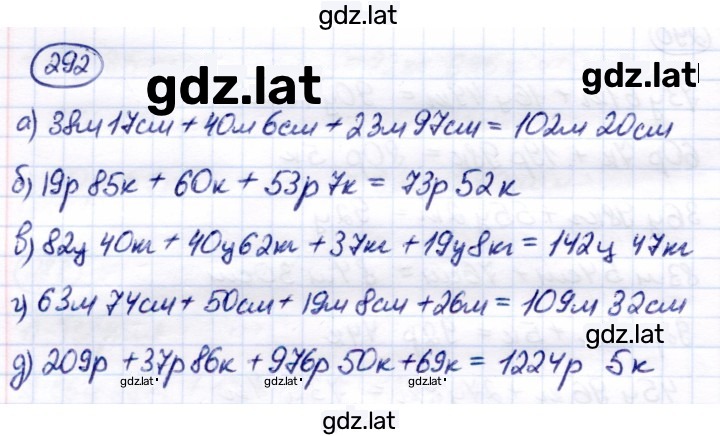 gdz.lat
292
gdz.lat gdz.lat
а) 38м 17см + 40м 6см + 23м 97см = 102м 20см
б) 19р 85к + 60к + 53р 7к = 73р 52к
в) 82ц 40кг + 40ц 62кг + 37кг + 19ц 8кг = 142ц 47кг
г) 63м 74см + 50см + 19м 8см + 26м = 109м 32см
gdz.lat
д) 209р + 37р 86к + 976р 50к + 69к = 1224р 5к
gdz.lat gdz.lat gdz.lat gdz.lat
gdz.lat